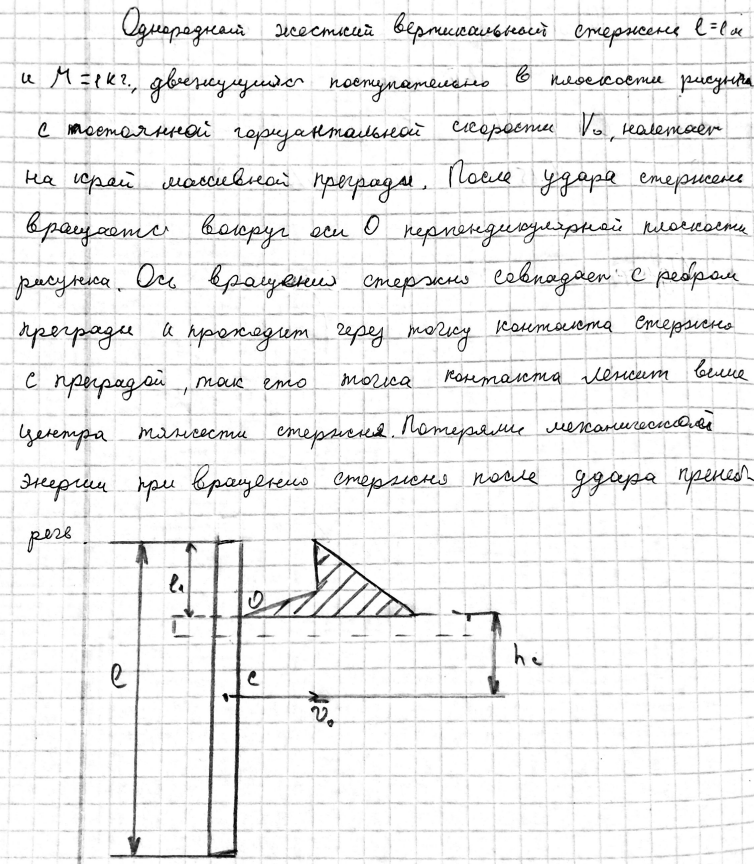 Однородный жесткий вертикальный стержень l=1м
и M=1кг., движущийся поступательно в плоскости рисунка
с постоянной горизонтальной скорости V₀, налетает
на край массивной преграды. После удара стержень
вращается вокруг оси O перпендикулярной плоскости
рисунка. Ось вращения стержня совпадает с ребром
преграды и проходит через точку контакта стержня
с преградой, так что точка контакта лежит выше
центра тяжести стержня. Потерями механической
энергии при вращению стержня после удара пренеб
речь.
l₁
O
l
C
V₀
h꜀